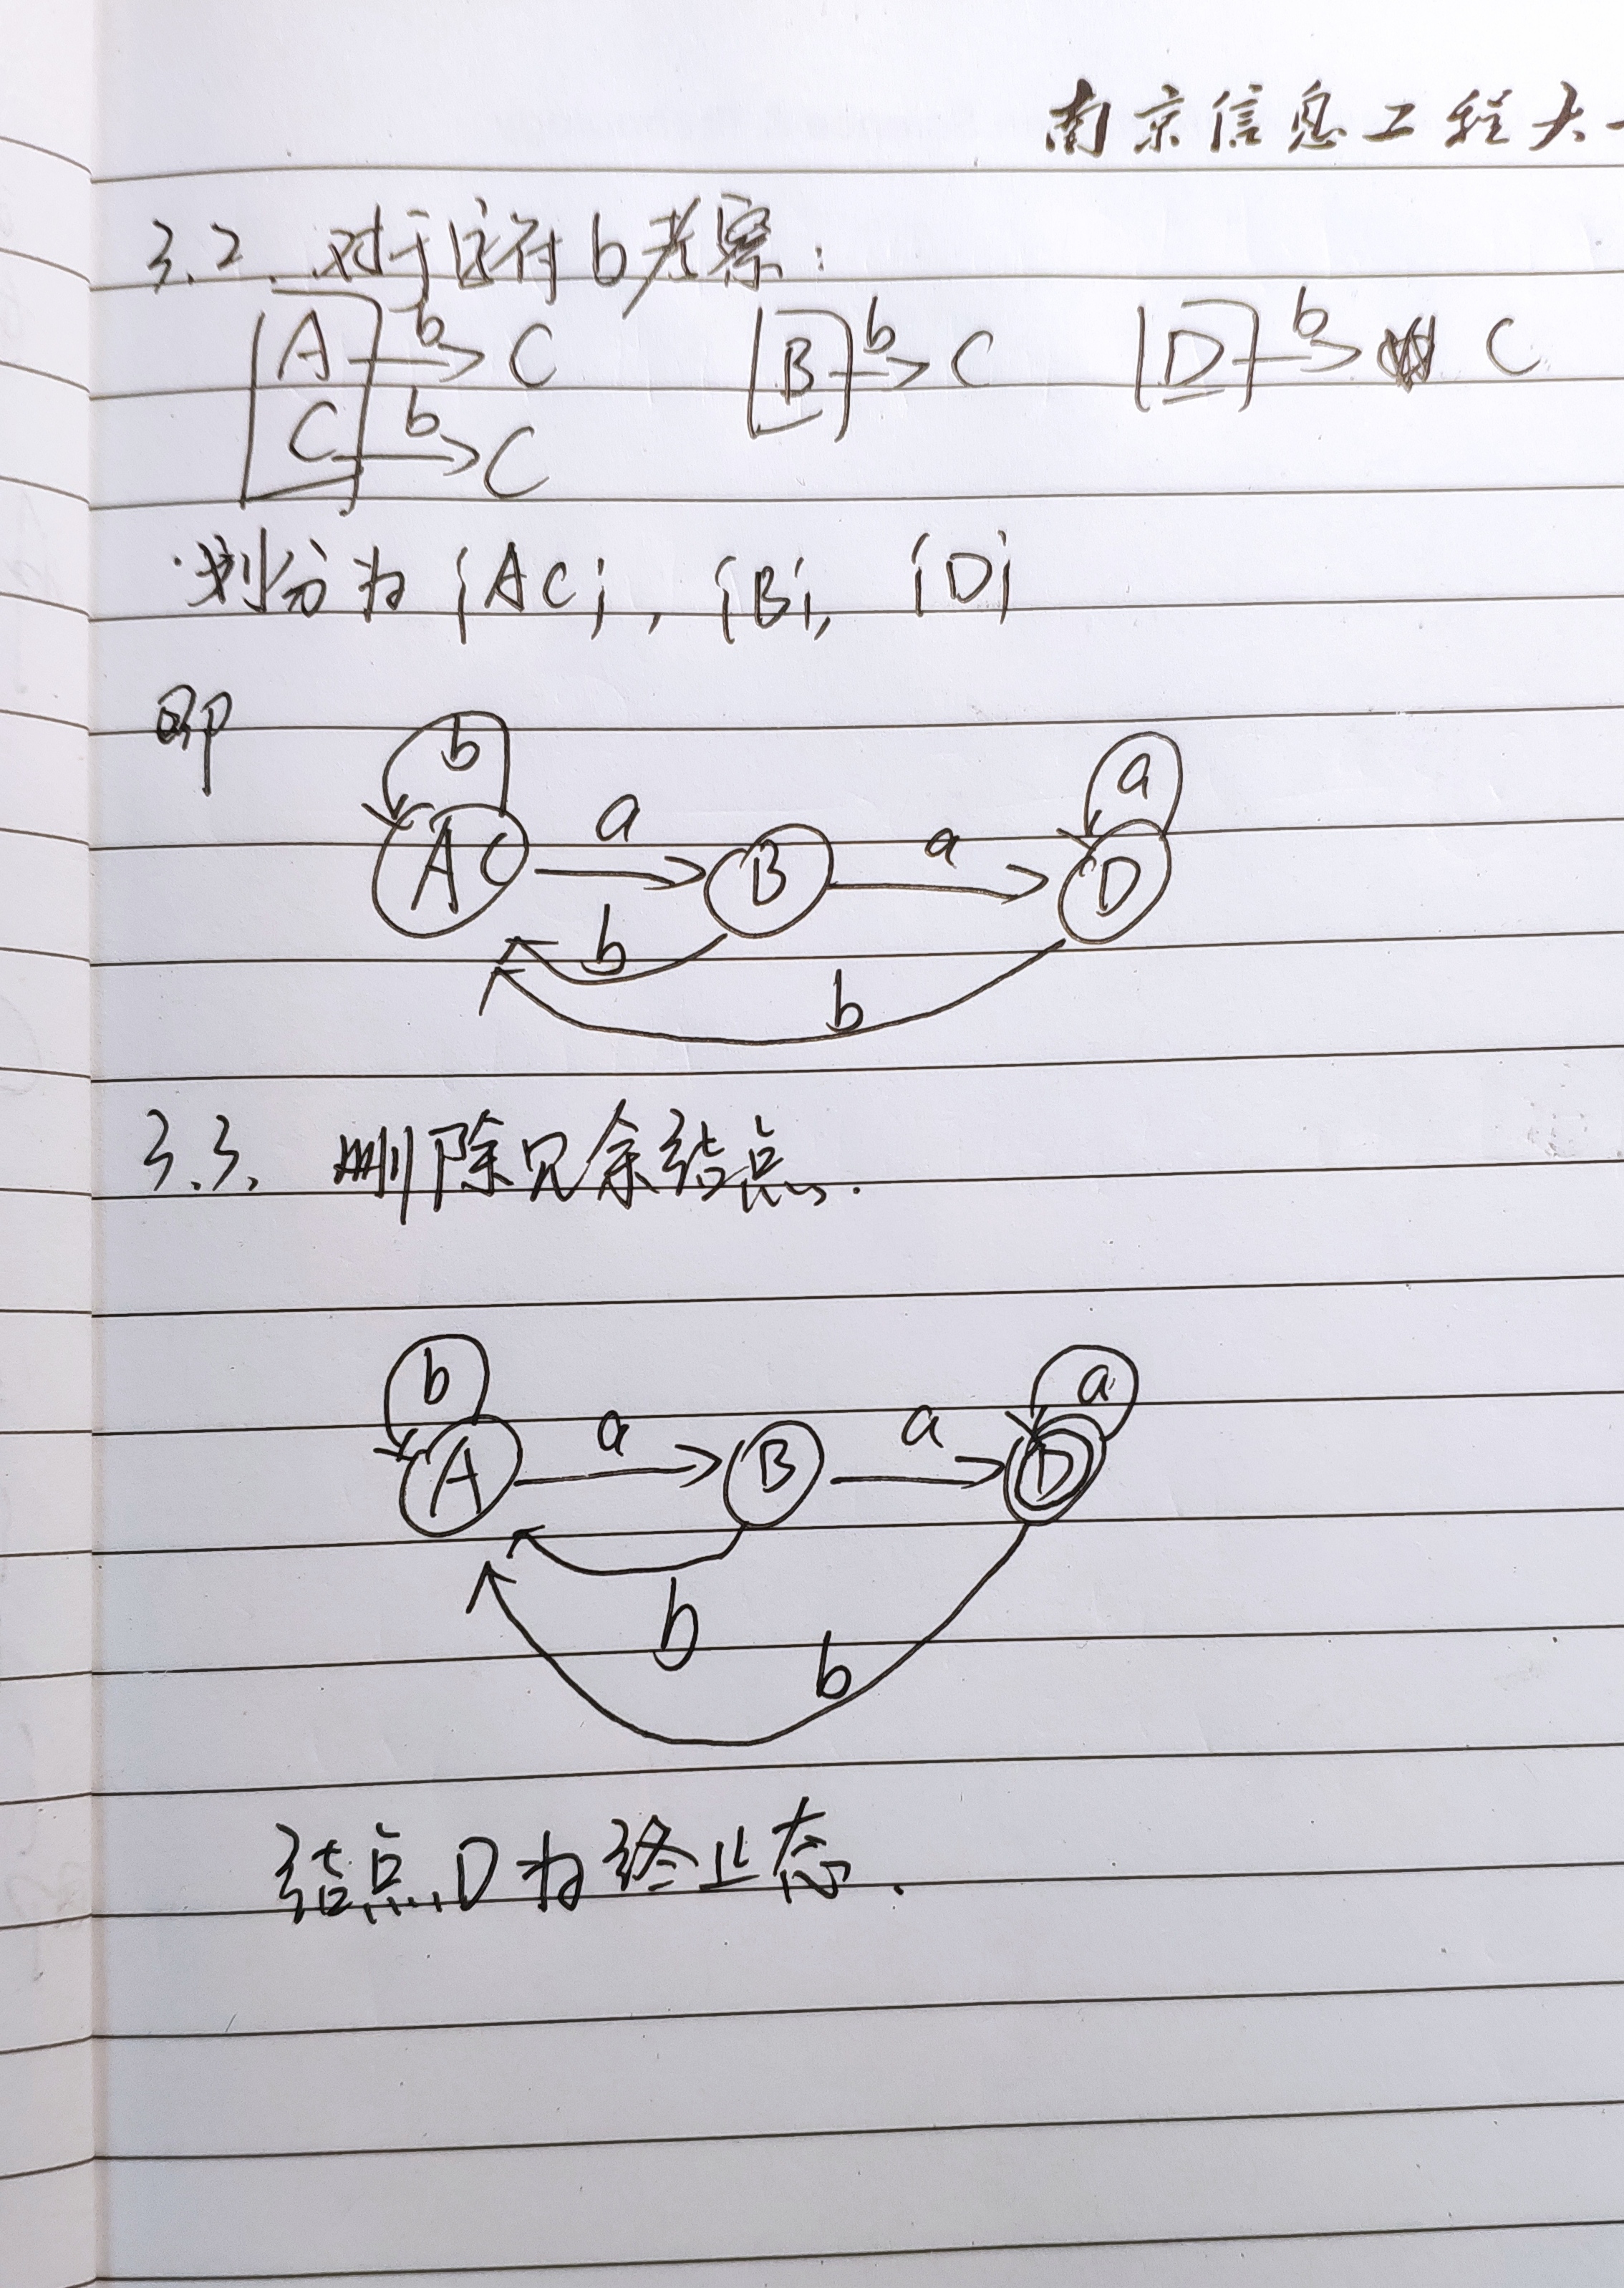 南京信息工程大
3.2. 对于字符b考察:
A b C B b C D b C
C b C
划分为{AC}, {B}, {D}
即
b a
a a
AC B D
b
b
3.3. 删除冗余结点.
b a
a a
A B D
b
b
结点D为终止态.